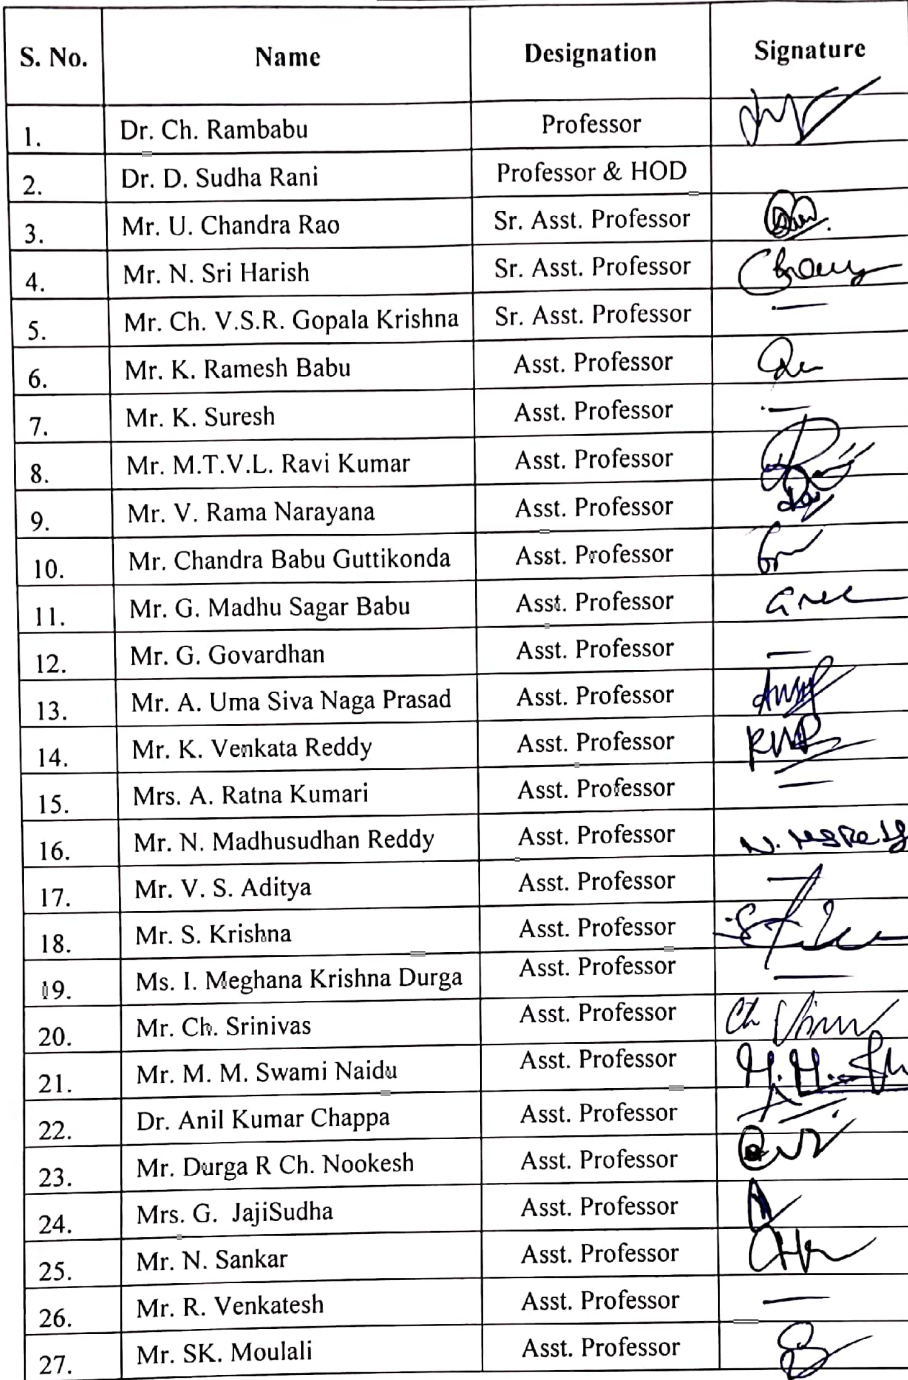 S. No. Name Designation Signature
1. Dr. Ch. Rambabu Professor
2. Dr. D. Sudha Rani Professor & HOD
3. Mr. U. Chandra Rao Sr. Asst. Professor
4. Mr. N. Sri Harish Sr. Asst. Professor
5. Mr. Ch. V.S.R. Gopala Krishna Sr. Asst. Professor —
6. Mr. K. Ramesh Babu Asst. Professor
7. Mr. K. Suresh Asst. Professor —
8. Mr. M.T.V.L. Ravi Kumar Asst. Professor
9. Mr. V. Rama Narayana Asst. Professor
10. Mr. Chandra Babu Guttikonda Asst. Professor
11. Mr. G. Madhu Sagar Babu Asst. Professor
12. Mr. G. Govardhan Asst. Professor —
13. Mr. A. Uma Siva Naga Prasad Asst. Professor
14. Mr. K. Venkata Reddy Asst. Professor
15. Mrs. A. Ratna Kumari Asst. Professor —
16. Mr. N. Madhusudhan Reddy Asst. Professor
17. Mr. V. S. Aditya Asst. Professor —
18. Mr. S. Krishna Asst. Professor
19. Ms. I. Meghana Krishna Durga Asst. Professor —
20. Mr. Ch. Srinivas Asst. Professor
21. Mr. M. M. Swami Naidu Asst. Professor
22. Dr. Anil Kumar Chappa Asst. Professor
23. Mr. Durga R Ch. Nookesh Asst. Professor
24. Mrs. G. JajiSudha Asst. Professor
25. Mr. N. Sankar Asst. Professor
26. Mr. R. Venkatesh Asst. Professor —
27. Mr. SK. Moulali Asst. Professor